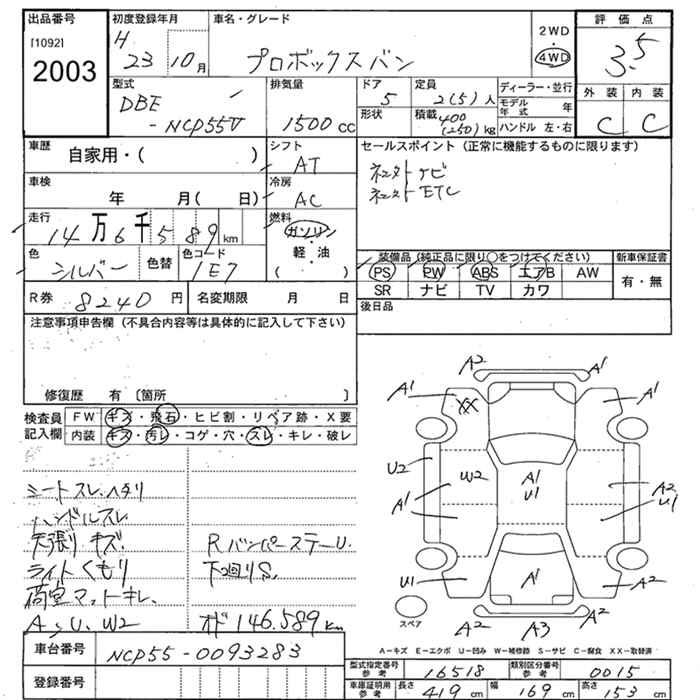 出品番号 初度登録年月 車名・グレード 評価点
[1092]
2003
H 23 10月 プロボックスバン 2WD 4WD 3.5
外装 内装
C C
型式 排気量 ドア 定員 ディーラー・並行
DBE 5 2(5)人 モデル年式 年
-NCP55V 1500cc 形状 積載 400(250)kg ハンドル 左・右
車歴 自家用・( ) シフト AT セールスポイント (正常に機能するものに限ります)
ナビ
ETC
車検 年 月( 日) 冷房 AC
走行 14万6千589km 燃料 ガソリン・軽・油( )
色 シルバー 色替 色コード 1E7
装備品 (純正品に限り○をつけてください) 新車保証書
PS PW ABS エアB AW 有・無
SR ナビ TV カワ
R券 8240円 名変期限 月 日 後日品
注意事項申告欄 (不具合内容等は具体的に記入して下さい)
修復歴 有 〔箇所 〕
検査員記入欄 FW キズ・飛石・ヒビ割・リペア跡・X要
内装 キズ・汚レ・コゲ・穴・スレ・キレ・破レ
シートスレ、ヘタリ
ハンドルスレ
天張りキズ、 RバンパーステーU.
ライトくもり 下廻りS.
荷室マットキレ、
A、U、W2 オド146.589km
A2 A1
A1 XX A1
U2 W2 A1 U1
A1 A2 U1
U1 A1 A2
A2 A3 A2
スペア
A−キズ E−エクボ U−凹み W−補修跡 S−サビ C−腐食 XX−取替済
車台番号 NCP55-0093283
登録番号
型式指定番号 参考 16518 類別区分番号 参考 0015
車庫証明用 参考 長さ 419cm 幅 169cm 高さ 153cm